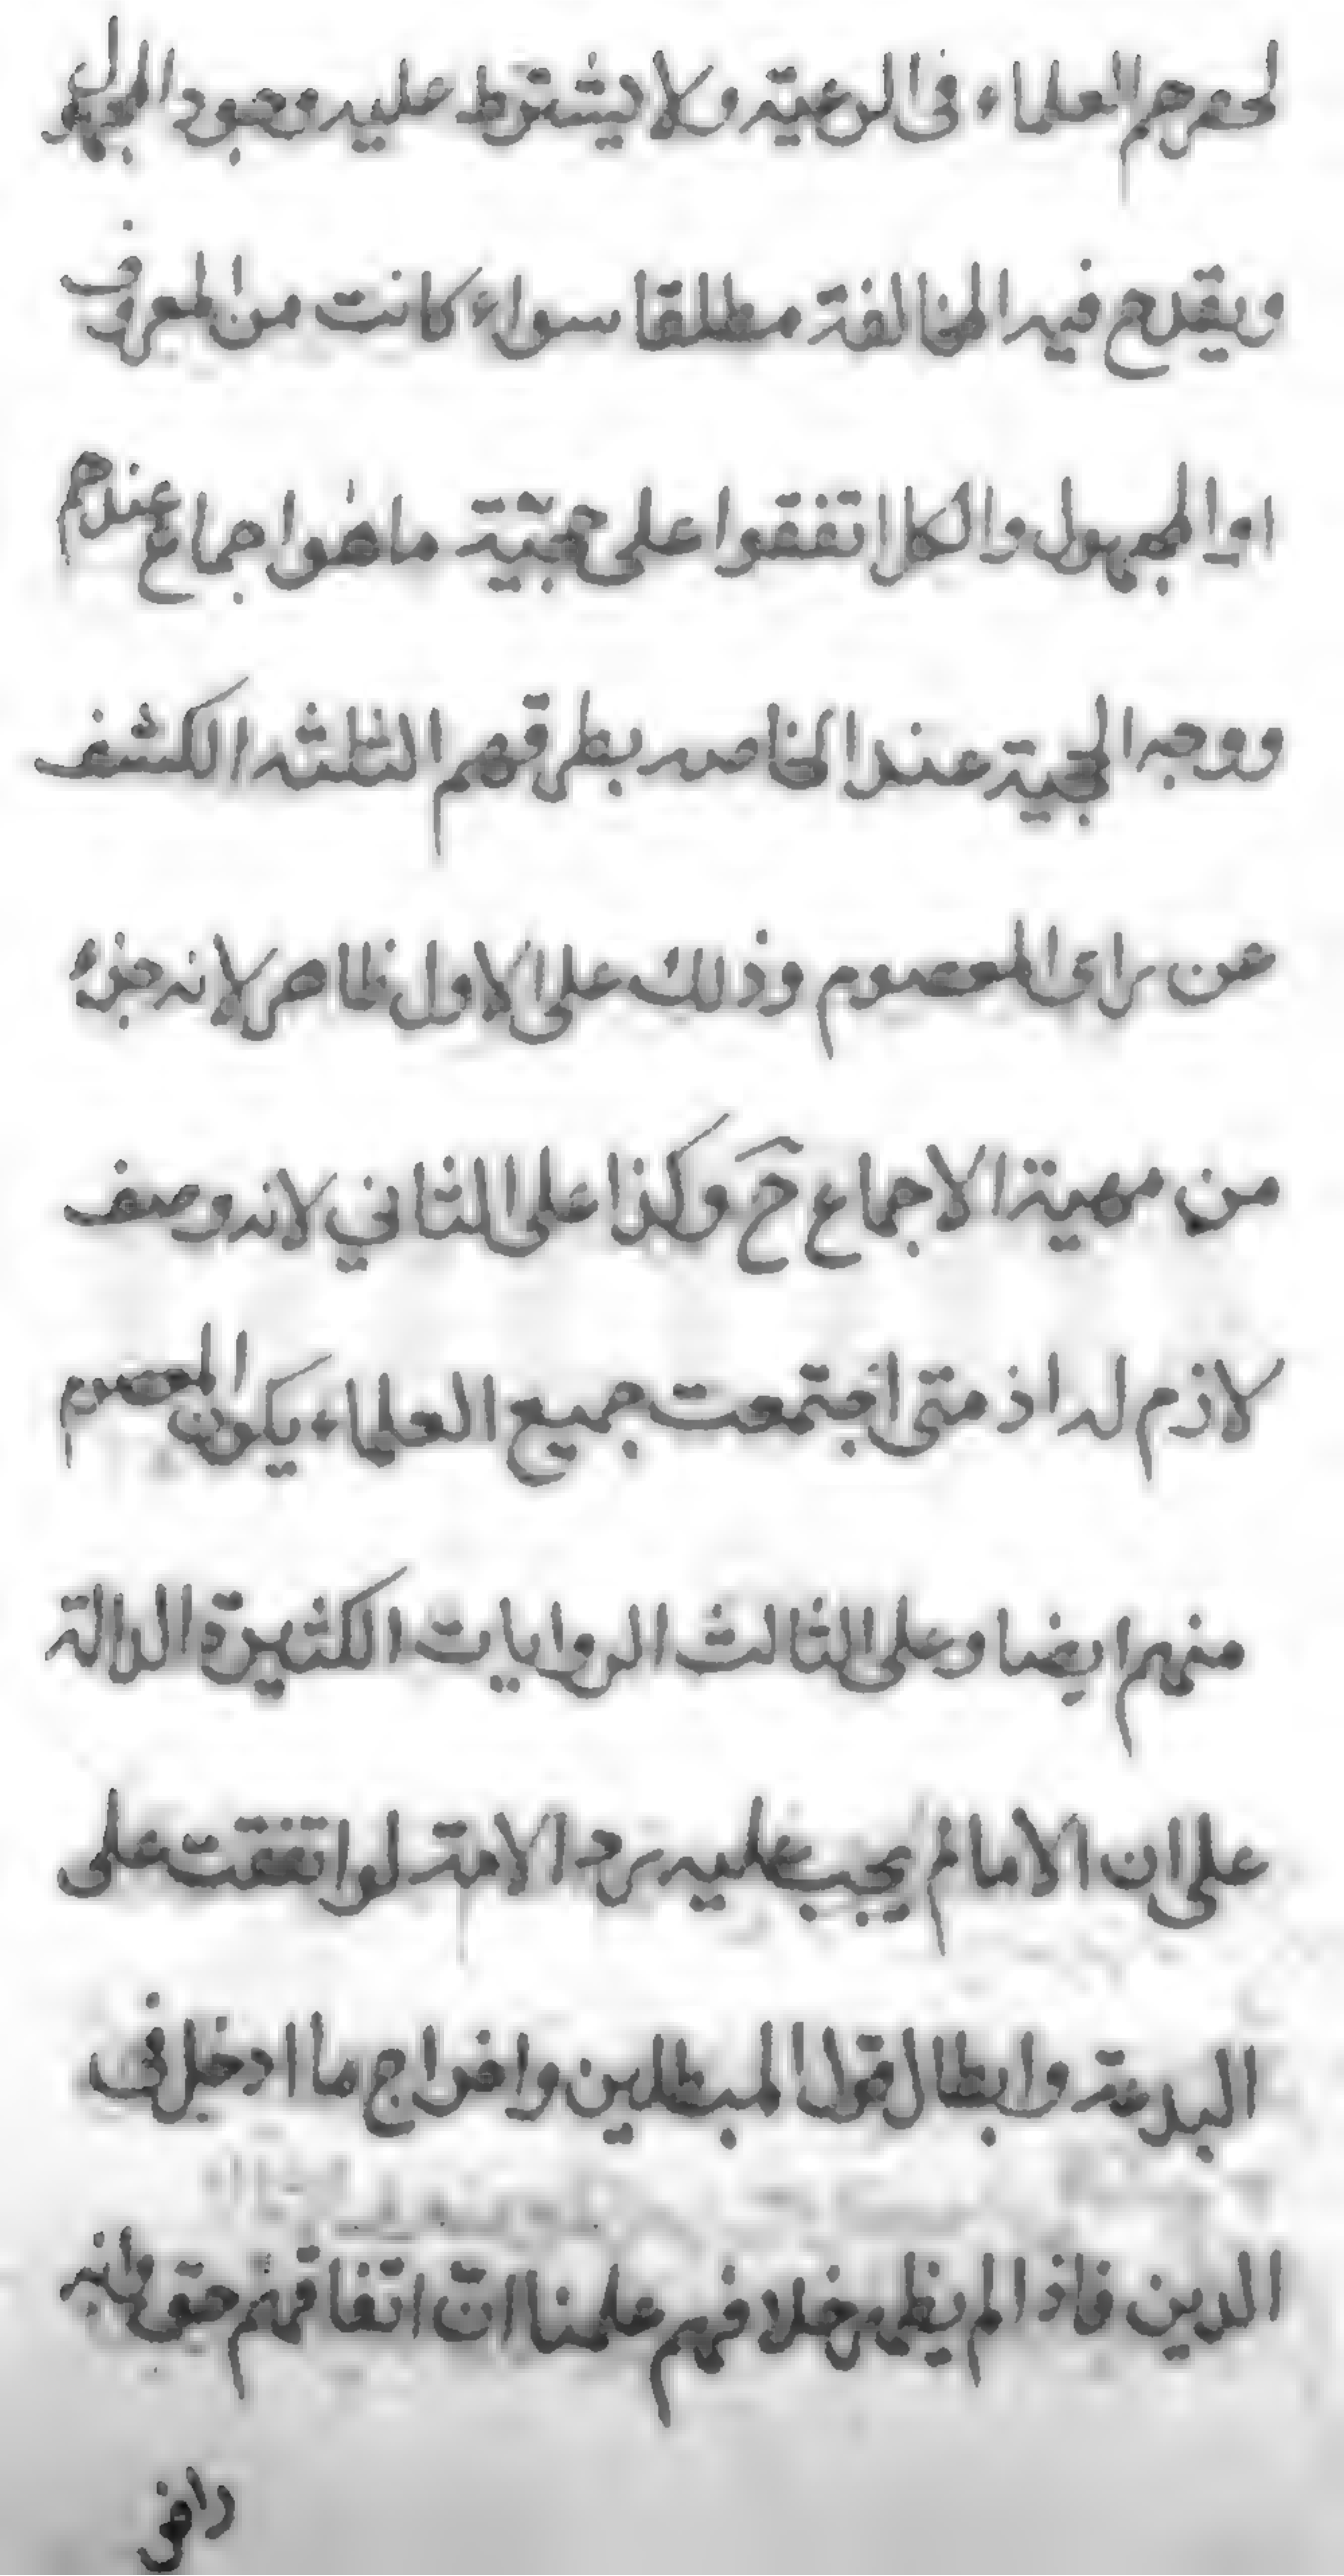 لحصرهم العلماء في الرعية ولا يشترط عليه وجود المجهول
ويقدح فيه المخالفة مطلقا سواء كانت من المعروف
او المجهول والكل اتفقوا على حجية ما هو اجماع عندهم
ووجه الحجية عند الخاصه بطرقهم الثلثه الكشف
عن راى المعصوم وذلك على الاول ظاهر لانه جزء
من مهية الاجماع ح وكذا على الثاني لانه وصف
لازم له اذ متى اجتمعت جميع العلماء يكون المعصوم
منهم ايضا وعلى الثالث الروايات الكثيرة الدالة
على ان الامام يجب عليه رد الامة لو اتفقت على
البدعة وابطال قول المبطلين واخراج ما ادخل في
الدين فاذا لم يظهر خلافهم علمنا ان اتفاقهم حق وانه